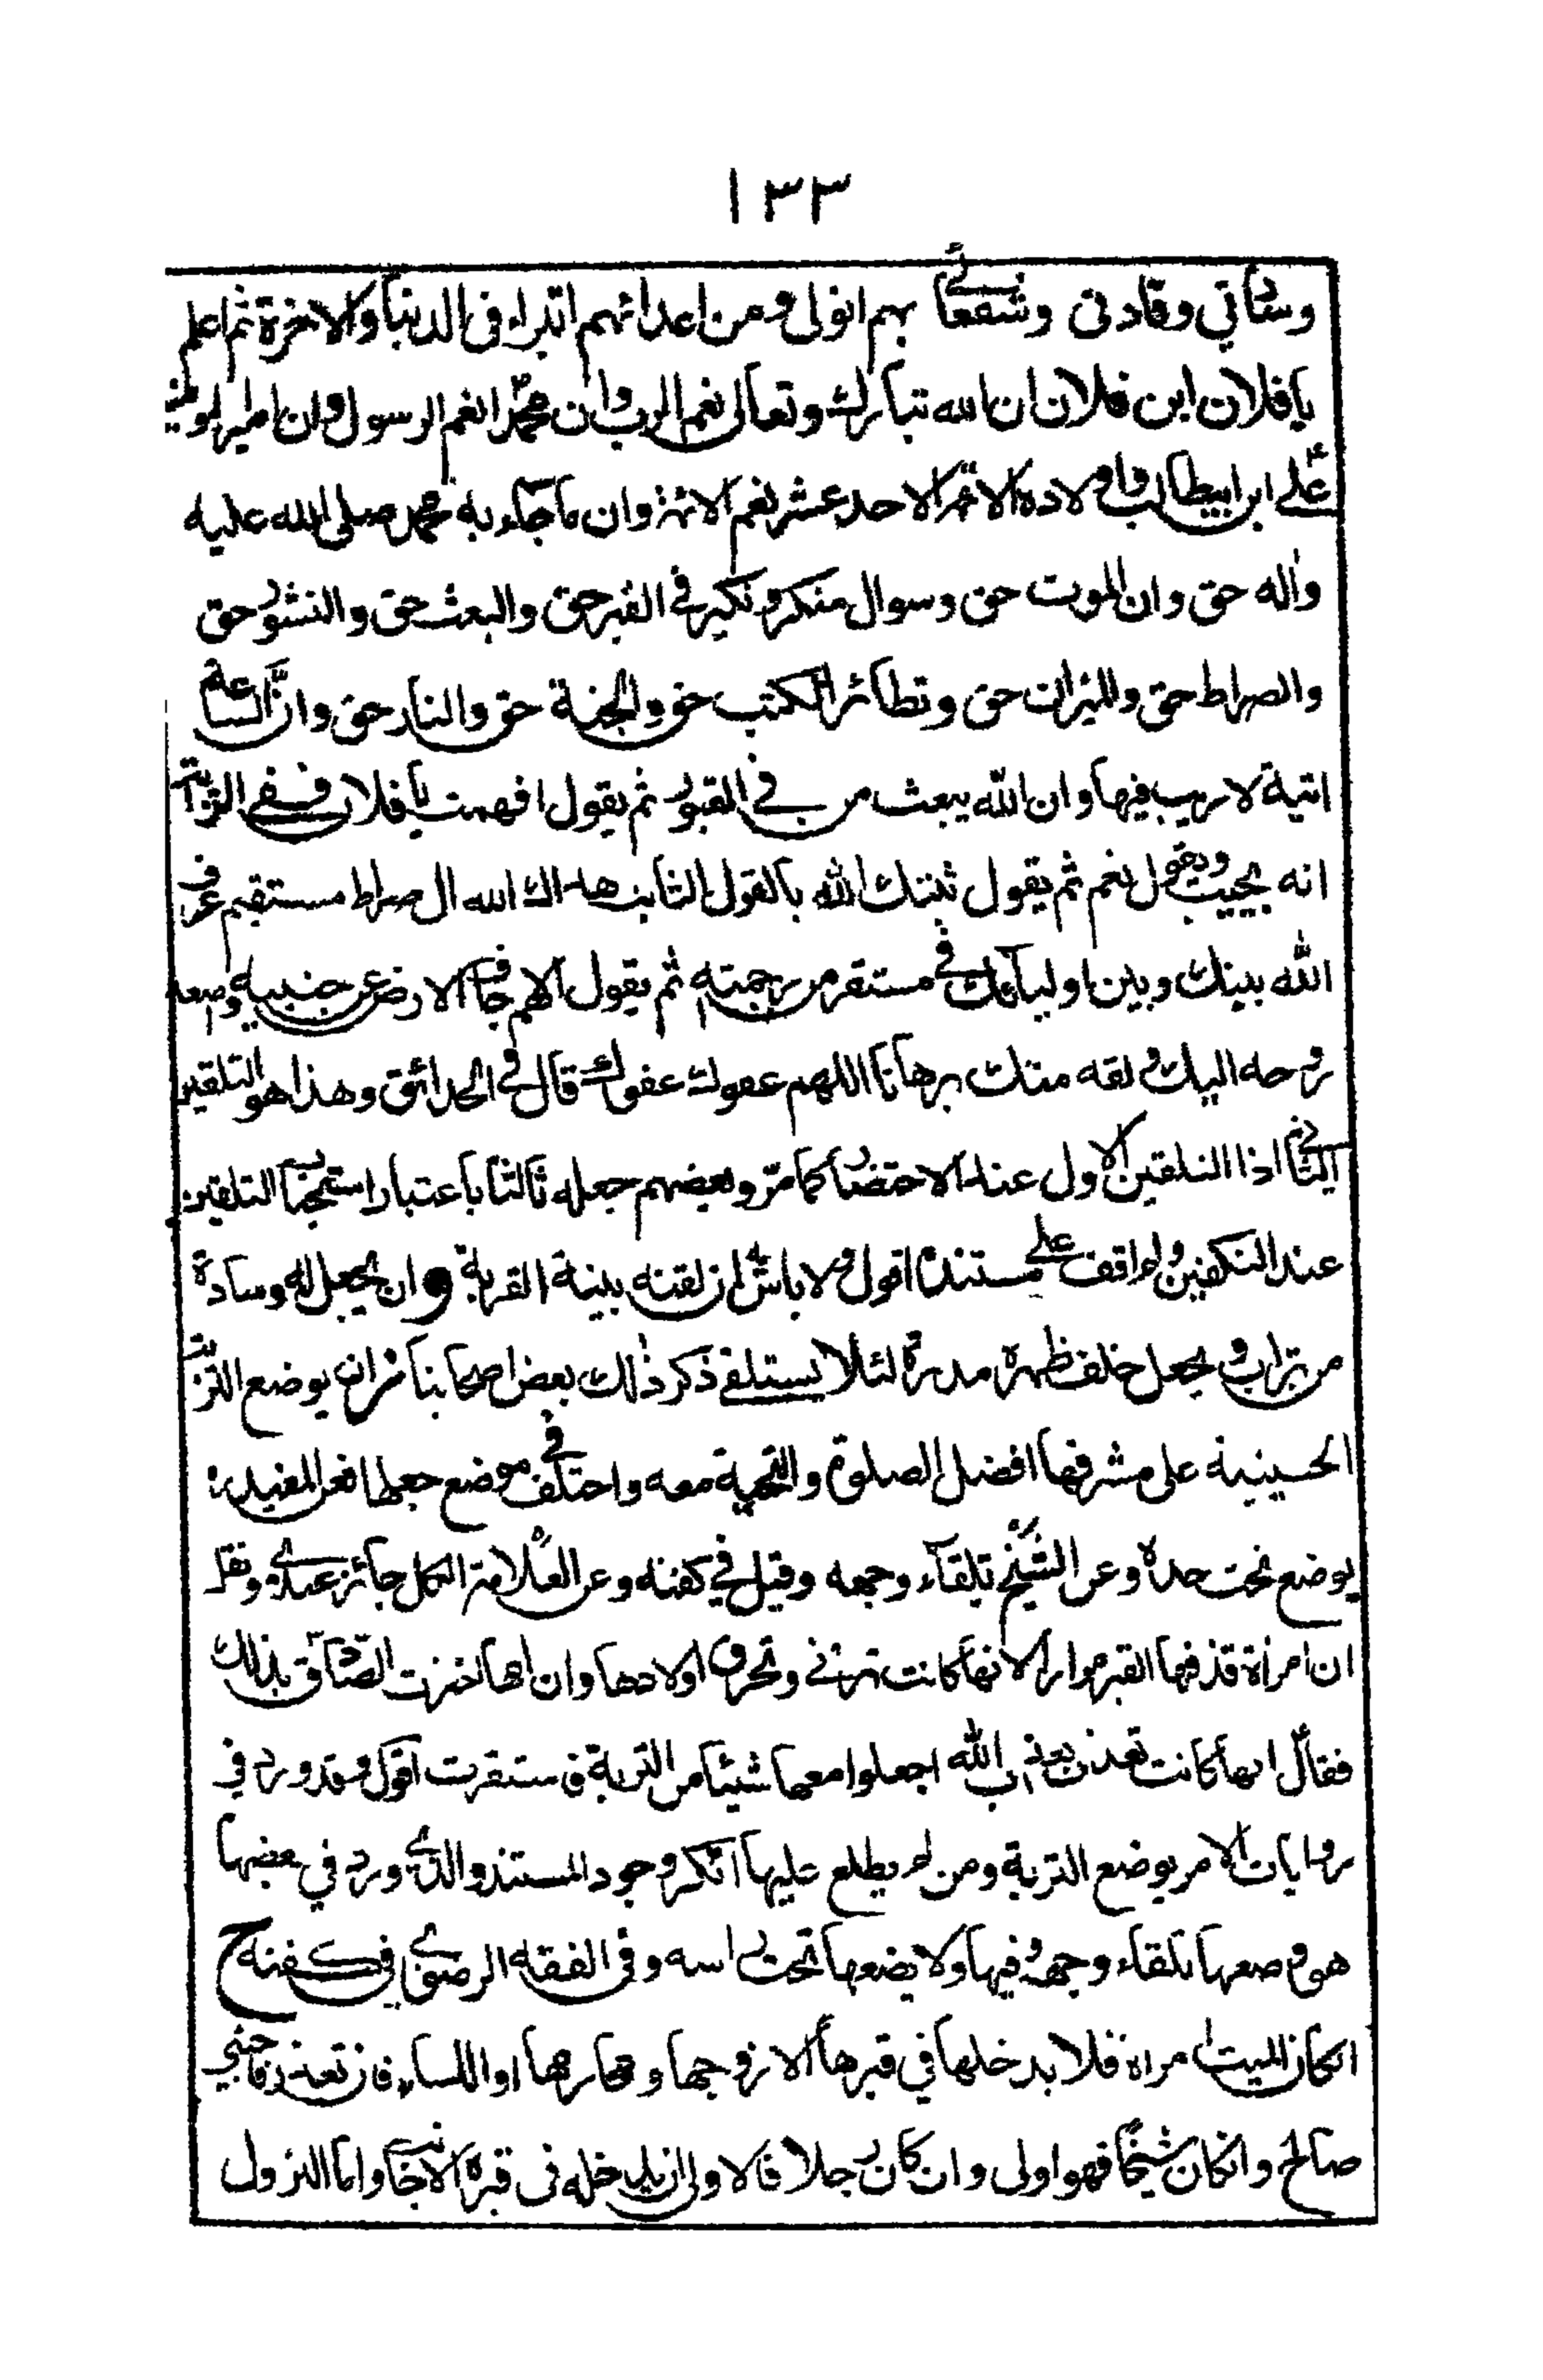 ١٣٣
وساداتي وقادتي وشفعائي بهم اتولى ومن اعدائهم اتبرء في الدنيا والاخرة ثم اعلم
يا فلان ابن فلان ان الله تبارك وتعالى نعم الرب وان محمدا نعم الرسول وان امير المومنين
علي ابن ابيطالب واولاده الائمة الاحد عشر نعم الائمة وان ما جاء به محمد صلى الله عليه
واله حق وان الموت حق وسوال منكر ونكير في القبر حق والبعث حق والنشور حق
والصراط حق والميزان حق وتطائر الكتب حق والجنة حق والنار حق وان الساعة
اتية لا ريب فيها وان الله يبعث من في القبور ثم يقول افهمت يا فلان ففي الرواية
انه يجيب ويقول نعم ثم يقول ثبتك الله بالقول الثابت هداك الله الى صراط مستقيم عرف
الله بينك وبين اوليائك في مستقر من رحمته ثم يقول اللهم جاف الارض عن جنبيه واصعد
روحه اليك ولقه منك برهانا اللهم عفوك عفوك قال في الحدائق وهذا هو التلقين
الثاني اذا التلقين الاول عند الاحتضار كما مر وبعضهم جعله ثالثا باعتبار استحباب التلقين
عند التكفين ولم اقف على مستنده اقول ولا باس ان لقنه بنية القربة وان يجعل له وسادة
من تراب ويجعل خلف ظهره مدرة لئلا يستلقي ذكر ذلك بعض اصحابنا وان يوضع التربة
الحسينية على مشرفها افضل الصلوة والتحية معه واختلف في موضع جعلها فعن المفيد
يوضع تحت خده وعن الشيخ تلقاء وجهه وقيل في كفنه وعن العلامة الكل جائز عندي ونقل
ان امراة قذفها القبر مرارا لانها كانت تزني وتحرق اولادها وان امها اخبرت الصادق بذلك
فقال انها كانت تعذب بعذاب الله اجعلوا معها شيئا من التربة فاستقرت اقول وقد ورد في
روايات الامر بوضع التربة ومن لم يطلع عليها انكر وجود المستند والذي ورد في بعضها
هو وضعها تلقاء وجهه وفيها ولا يضعها تحت راسه وفي الفقه الرضوي في كفنه ح
ان كان الميت امراة فلا يدخلها في قبرها الا زوجها ومحارمها او النساء فان تعذر فاجنبي
صالح وان كان شيخا فهو اولى وان كان رجلا فالاولى ان يدخله في قبره الاجانب واما النزول